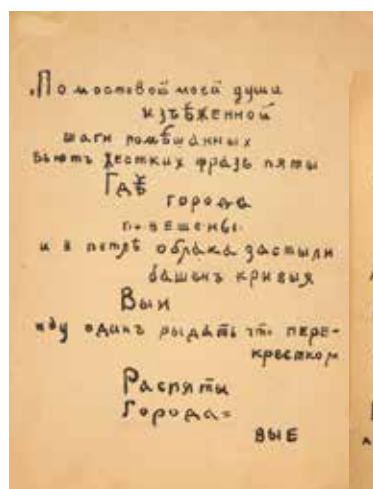 „По мостовой моей души
изъѣженной
шаги помѣшанных
вьютъ жестких фразъ пяты
Гдѣ
города
повешены
и в петлѣ облака застыли
башенъ кривыя
Выи
иду одинъ рыдать что пере-
крестком
Распяты
Города=
вые